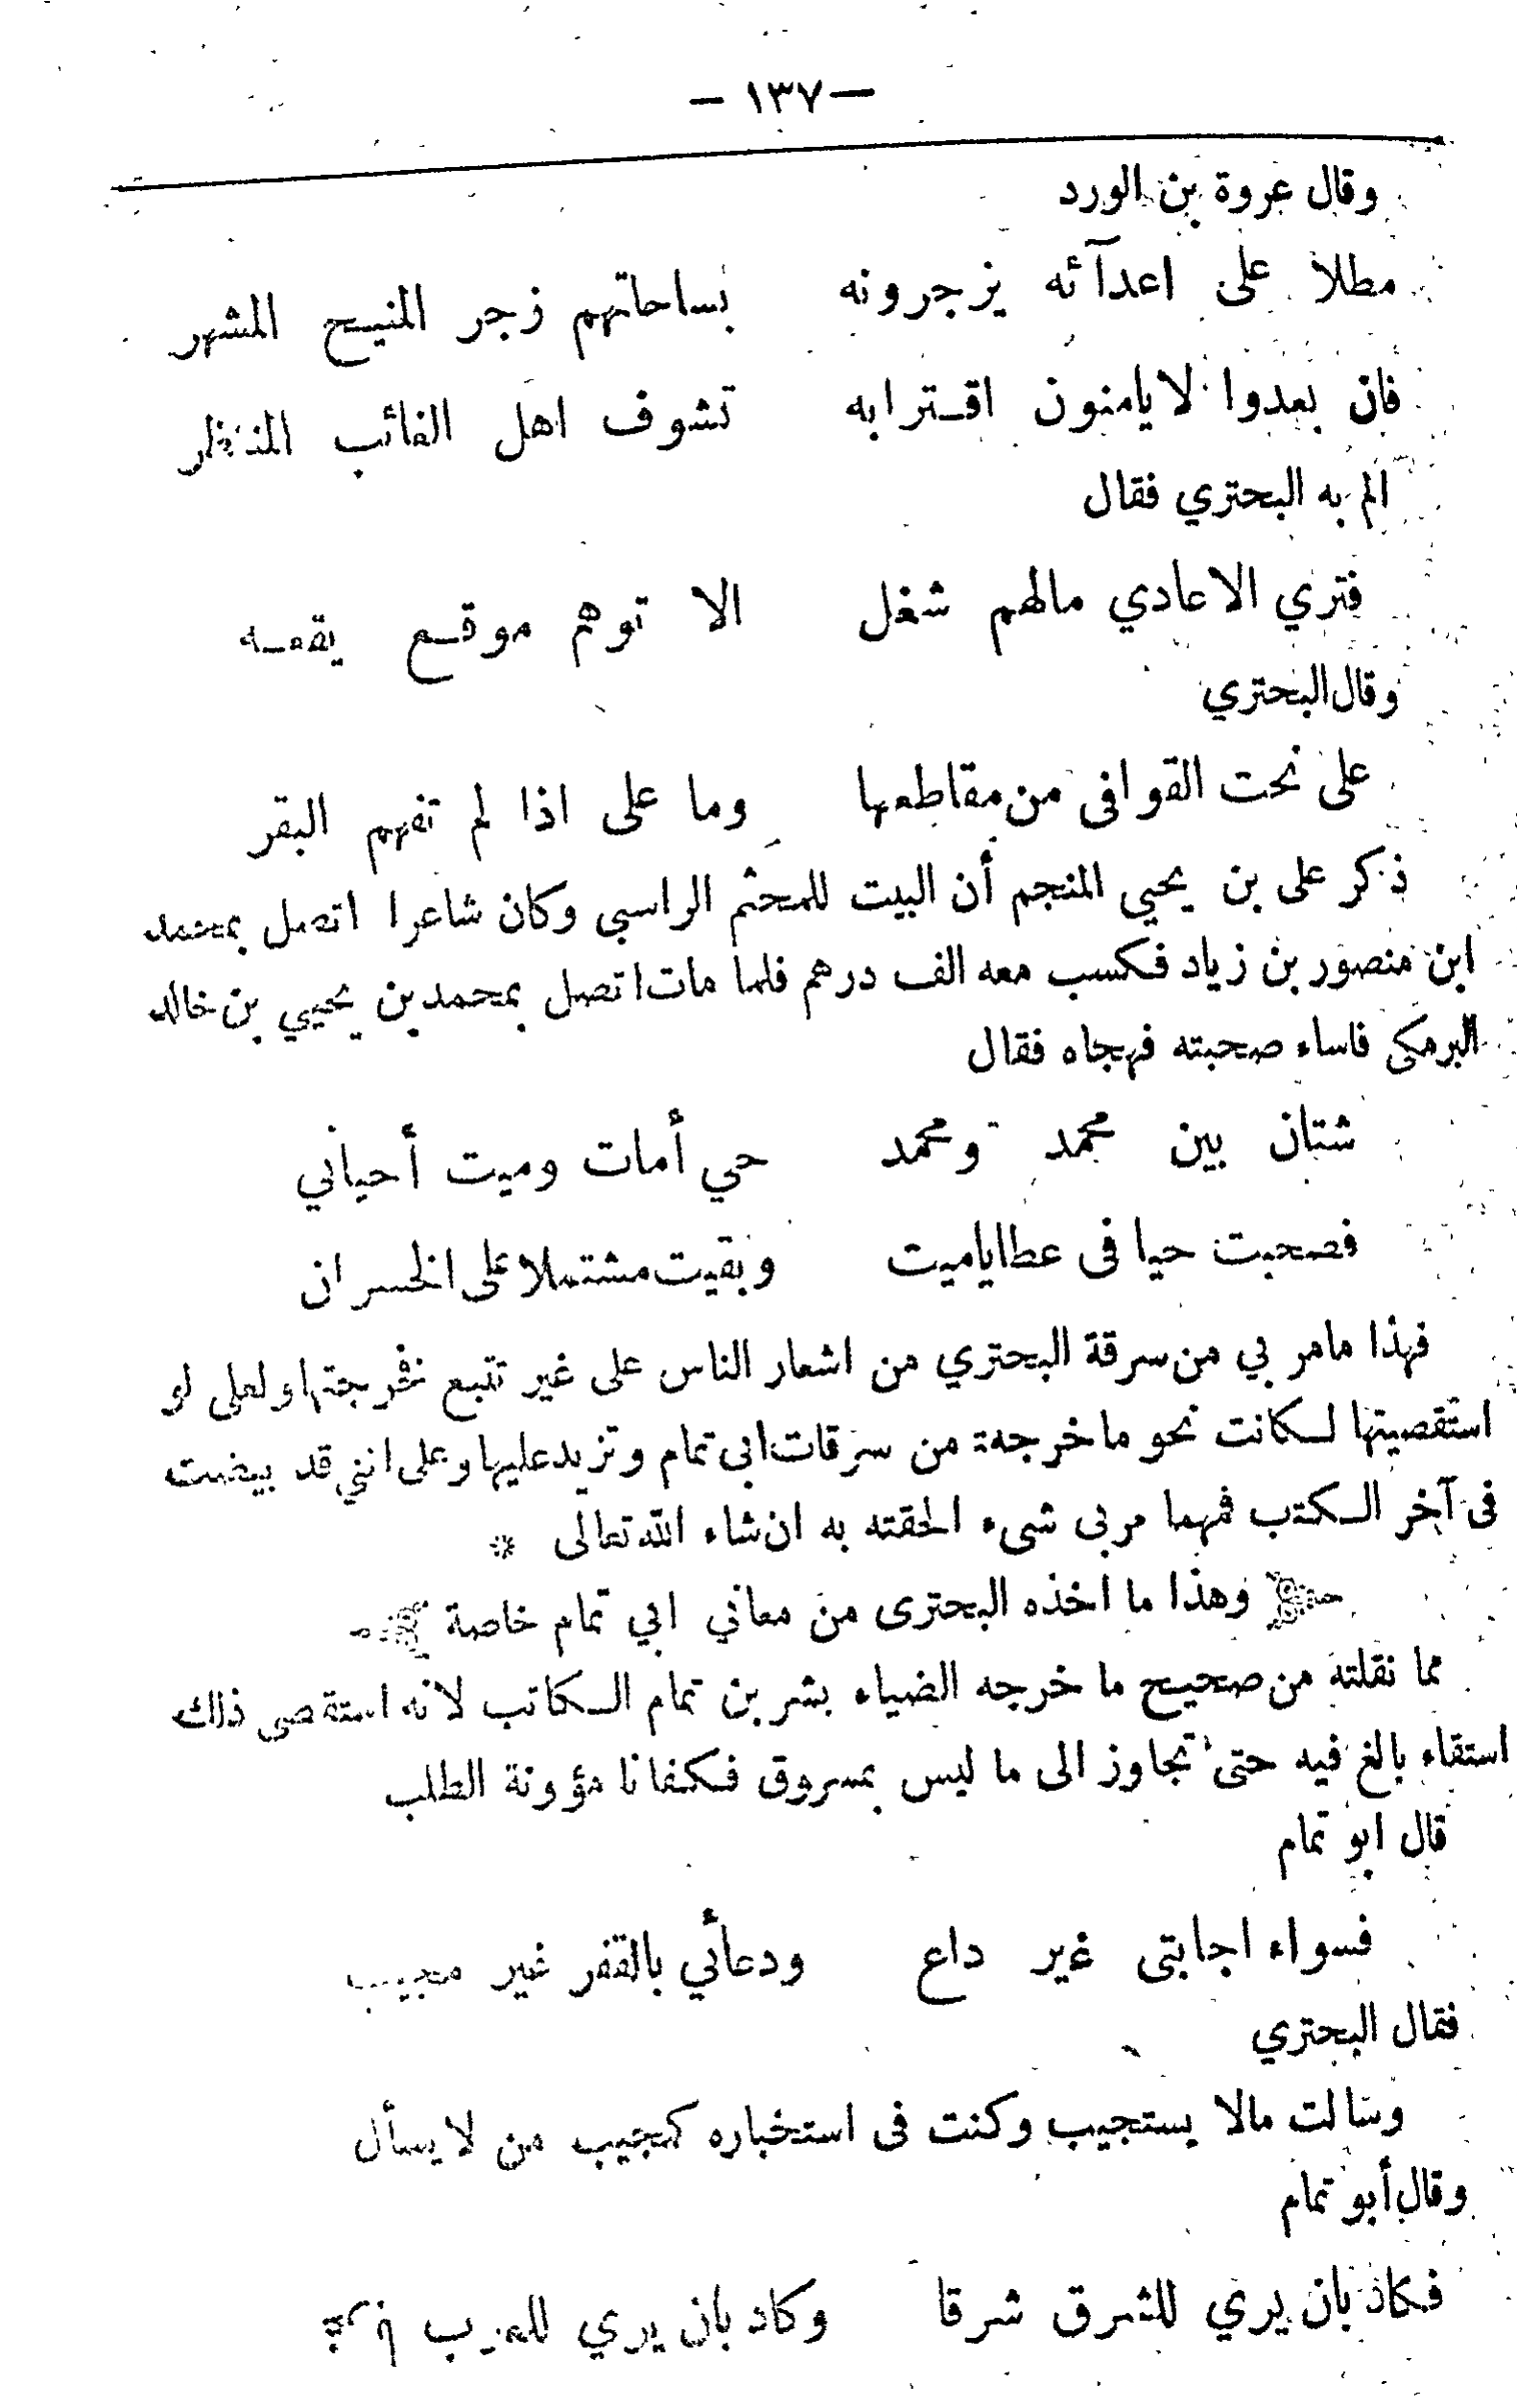 — ١٣٧ —
وقال عروة بن الورد
مطلا على اعدآئه يزجرونه بساحاتهم زجر المنيح المشهر
فان بعدوا لا يامنون اقترابه تشوف اهل الغائب المنتظر
الم به البحتري فقال
فتري الاعادي مالهم شغل الا توهم موقع يقعه
وقال البحتري
على نحت القوافى من مقاطعها وما على اذا لم تفهم البقر
ذكر على بن يحيي المنجم أن البيت للمحثم الراسبي وكان شاعرا اتصل بمحمد
ابن منصور بن زياد فكسب معه الف درهم فلما مات اتصل بمحمد بن يحيي بن خالد
البرمكى فاساء صحبته فهجاه فقال
شتان بين محمد ومحمد حي أمات وميت أحياني
فصحبت حيا فى عطايا ميت وبقيت مشتملا على الخسران
فهذا مامر بي من سرقة البحتري من اشعار الناس على غير تتبع فخرجتها ولعلى لو
استقصيتها لكانت نحو ما خرجته من سرقات ابى تمام وتزيد عليها وعلى انني قد بيضت
فى آخر الكتب فمهما مر بى شىء الحقته به ان شاء الله تعالى *
وهذا ما اخذه البحترى من معاني ابي تمام خاصة
مما نقلته من صحيح ما خرجه الضياء بشر بن تمام الكاتب لانه استقصى ذلك
استقاء بالغ فيه حتى تجاوز الى ما ليس بمسروق فكفانا مؤونة الطلب
قال ابو تمام
فسواء اجابتى غير داع ودعأني بالقفر غير مجيب
فقال البحتري
وسالت مالا يستجيب وكنت فى استخباره كمجيب من لا يسأل
وقال أبو تمام
فكاد بان يري للشرق شرقا وكاد بان يري للغرب